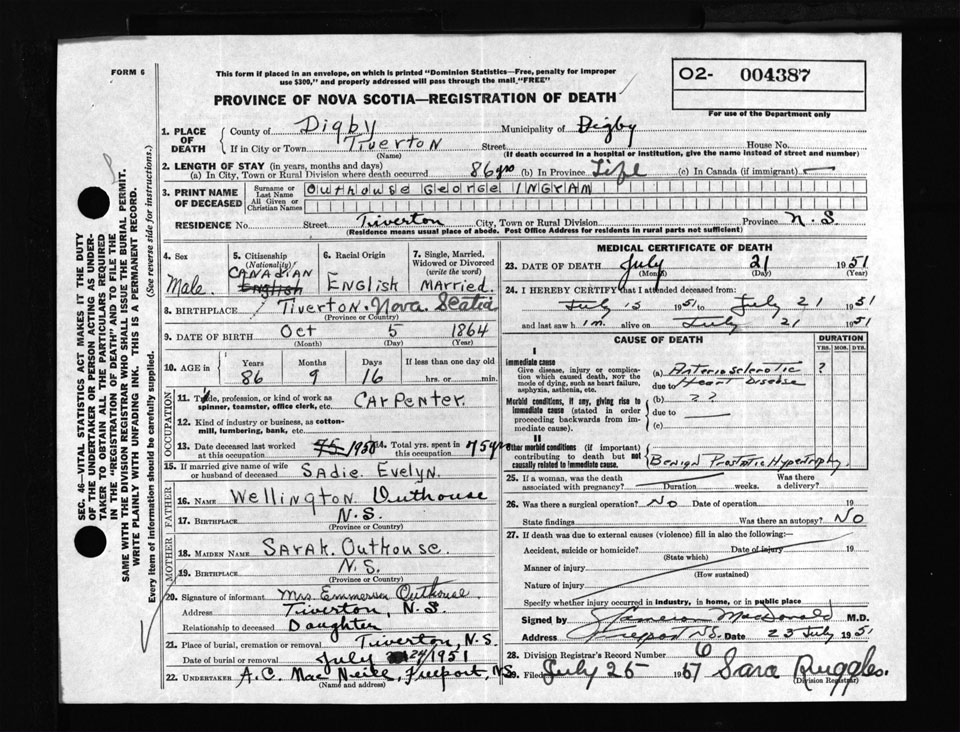 FORM 6
This form if placed in an envelope, on which is printed "Dominion Statistics—Free, penalty for improper
use $300," and properly addressed will pass through the mail "FREE"
O2- 004387
PROVINCE OF NOVA SCOTIA—REGISTRATION OF DEATH
For use of the Department only
1. PLACE OF DEATH
County of Digby Municipality of Digby
If in City or Town Tiverton Street House No.
(Name) (If death occurred in a hospital or institution, give the name instead of street and number)
2. LENGTH OF STAY (in years, months and days)
(a) In City, Town or Rural Division where death occurred 86 yrs (b) In Province Life (c) In Canada (if immigrant) —
3. PRINT NAME OF DECEASED
Surname or Last Name OUTHOUSE GEORGE INGRAM
All Given or Christian Names
RESIDENCE No. Street Tiverton City, Town or Rural Division Province N.S.
(Residence means usual place of abode. Post Office Address for residents in rural parts not sufficient)
4. Sex Male.
5. Citizenship (Nationality) CANADIAN English
6. Racial Origin ENGLISH
7. Single, Married, Widowed or Divorced (write the word) MARRIED.
8. BIRTHPLACE Tiverton. Nova. Scotia
(Province or Country)
9. DATE OF BIRTH Oct 5 1864
(Month) (Day) (Year)
10. AGE in Years Months Days If less than one day old
86 9 16 hrs. or min.
OCCUPATION
11. Trade, profession, or kind of work as spinner, teamster, office clerk, etc. Carpenter.
12. Kind of industry or business, as cotton-mill, lumbering, bank, etc.
13. Date deceased last worked at this occupation 1950
14. Total yrs. spent in this occupation 75 yrs
15. If married give name of wife or husband of deceased Sadie Evelyn.
FATHER
16. NAME Wellington Outhouse
17. BIRTHPLACE N.S.
(Province or Country)
MOTHER
18. MAIDEN NAME Sarah. Outhouse.
19. BIRTHPLACE N.S.
(Province or Country)
20. Signature of informant Mrs. Emmerson Outhouse.
Address Tiverton, N.S.
Relationship to deceased Daughter
21. Place of burial, cremation or removal Tiverton, N.S.
Date of burial or removal July 24/1951
22. UNDERTAKER A.C. Mac Neill, Freeport, N.S.
(Name and address)
MEDICAL CERTIFICATE OF DEATH
23. DATE OF DEATH July 21 1951
(Month) (Day) (Year)
24. I HEREBY CERTIFY that I attended deceased from:
July 15 1951 to July 21 1951
and last saw h im alive on July 21 1951
CAUSE OF DEATH DURATION
YRS. MOS. DYS.
I
Immediate cause
Give disease, injury or complication which caused death, NOT the mode of dying, such as heart failure, asphyxia, asthenia, etc.
(a) Arteriosclerotic ?
due to Heart Disease
Morbid conditions, if any, giving rise to immediate cause (stated in order proceeding backwards from immediate cause).
(b) ??
due to —
(c)
II
Other morbid conditions (if important) contributing to death but not causally related to immediate cause.
Benign Prostatic Hypertrophy.
25. If a woman, was the death associated with pregnancy? Duration weeks. Was there a delivery?
26. Was there a surgical operation? No Date of operation 19
State findings Was there an autopsy? No
27. If death was due to external causes (violence) fill in also the following:—
Accident, suicide or homicide? Date of injury 19
(State which)
Manner of injury
(How sustained)
Nature of injury
Specify whether injury occurred in industry, in home, or in public place
Signed by MacDonald M.D.
Address Freeport N.S. Date 23 July 1951
28. Division Registrar's Record Number 6
29. Filed July 25 1951 Sara Ruggles.
(Division Registrar)
SEC. 46—VITAL STATISTICS ACT MAKES IT THE DUTY
OF THE UNDERTAKER OR PERSON ACTING AS UNDER-
TAKER TO OBTAIN ALL THE PARTICULARS REQUIRED
IN THE "REGISTRATION OF DEATH" AND TO FILE THE
SAME WITH THE DIVISION REGISTRAR WHO SHALL ISSUE THE BURIAL PERMIT.
WRITE PLAINLY WITH UNFADING INK. THIS IS A PERMANENT RECORD.
Every item of information should be carefully supplied. (See reverse side for instructions.)